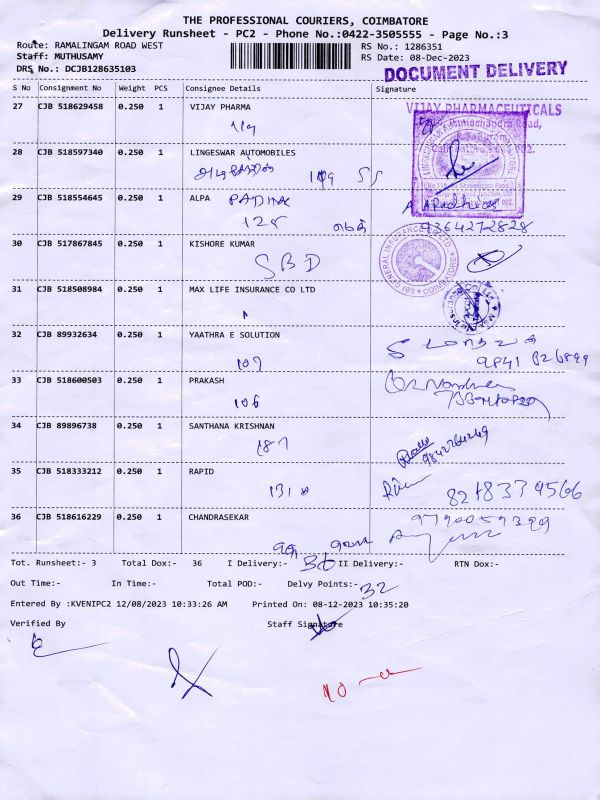 THE PROFESSIONAL COURIERS, COIMBATORE
Delivery Runsheet - PC2 - Phone No.:0422-3505555 - Page No.:3
Route: RAMALINGAM ROAD WEST
RS No.: 1286351
Staff: MUTHUSAMY
RS Date: 08-Dec-2023
DRS No.: DCJB128635103
DOCUMENT DELIVERY
S No Consignment No Weight PCS Consignee Details Signature
27 CJB 518629458 0.250 1 VIJAY PHARMA
VIJAY PHARMACEUTICALS
28 CJB 518597340 0.250 1 LINGESWAR AUTOMOBILES
29 CJB 518554645 0.250 1 ALPA
128
9364272828
30 CJB 517867845 0.250 1 KISHORE KUMAR
SBD
SBI GENERAL INSURANCE CO. LTD. COIMBATORE
31 CJB 518508984 0.250 1 MAX LIFE INSURANCE CO LTD
32 CJB 89932634 0.250 1 YAATHRA E SOLUTION
107
33 CJB 518600503 0.250 1 PRAKASH
106
34 CJB 89896738 0.250 1 SANTHANA KRISHNAN
187
9842764249
35 CJB 518333212 0.250 1 RAPID
131
36 CJB 518616229 0.250 1 CHANDRASEKAR
Tot. Runsheet:- 3 Total Dox:- 36 I Delivery:- 36 II Delivery:- RTN Dox:-
Out Time:- In Time:- Total POD:- Delvy Points:- 32
Entered By :KVENIPC2 12/08/2023 10:33:26 AM Printed On: 08-12-2023 10:35:20
Verified By Staff Signature
10